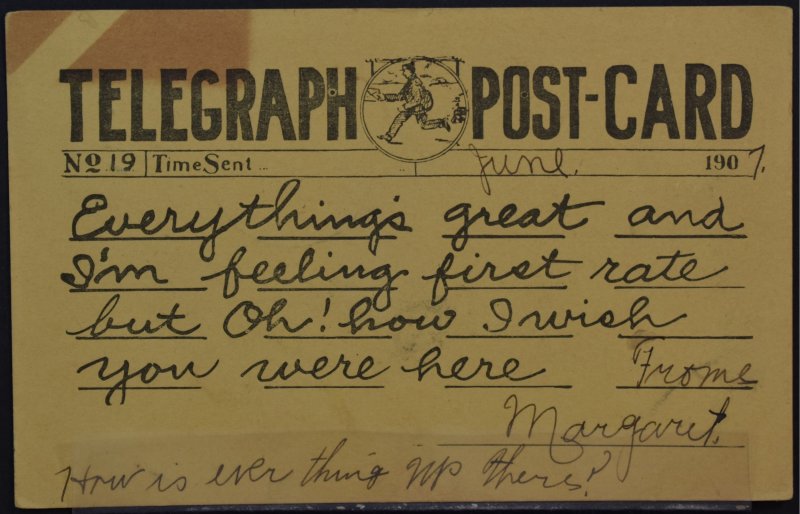 TELEGRAPH POST-CARD
No 19 Time Sent June. 1907.
Everything's great and
I'm feeling first rate
but Oh! how I wish
you were here Frome
Margaret.
How is ever thing up there?